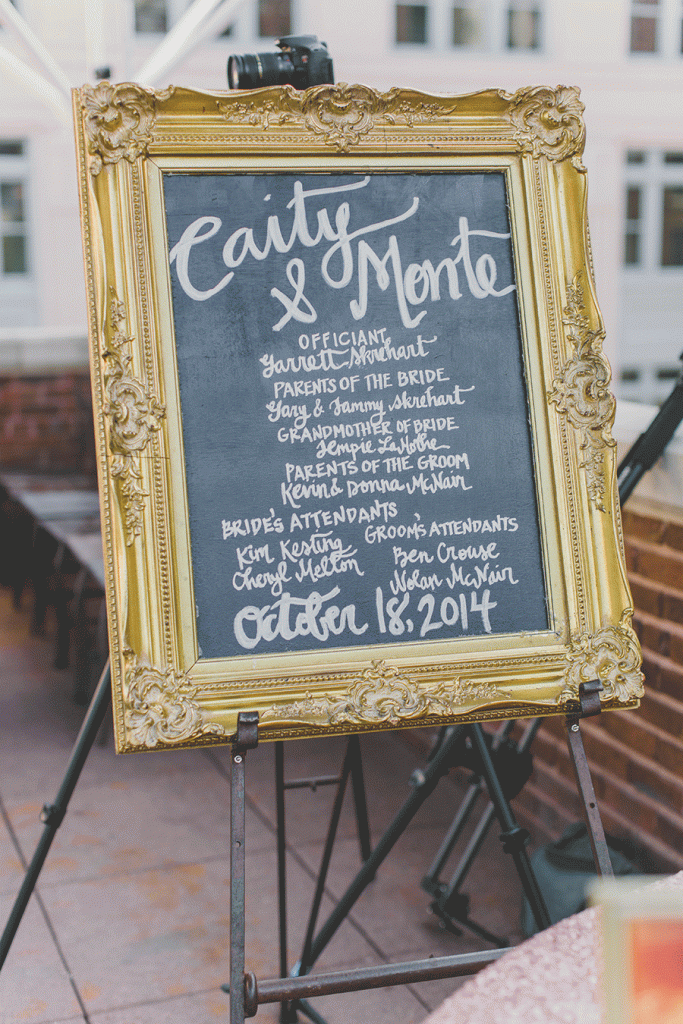 Caity
& Monte
OFFICIANT
Garrett Skrehart
PARENTS OF THE BRIDE
Gary & Tammy Skrehart
GRANDMOTHER OF BRIDE
Jempie LaMothe
PARENTS OF THE GROOM
Kevin & Donna McNair
BRIDE'S ATTENDANTS
Kim Kesting
Cheryl Melton
GROOM'S ATTENDANTS
Ben Crouse
Nolan McNair
October 18, 2014